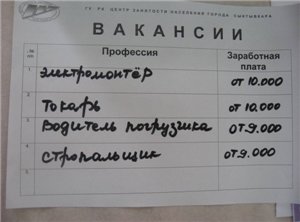 ГУ РК ЦЕНТР ЗАНЯТОСТИ НАСЕЛЕНИЯ ГОРОДА СЫКТЫВКАРА
ВАКАНСИИ
№ Профессия Заработная плата
1. электромонтёр от 10.000
2. токарь от 10.000
3. Водитель погрузчика от 9.000
4. стропальщик от 9.000
5.